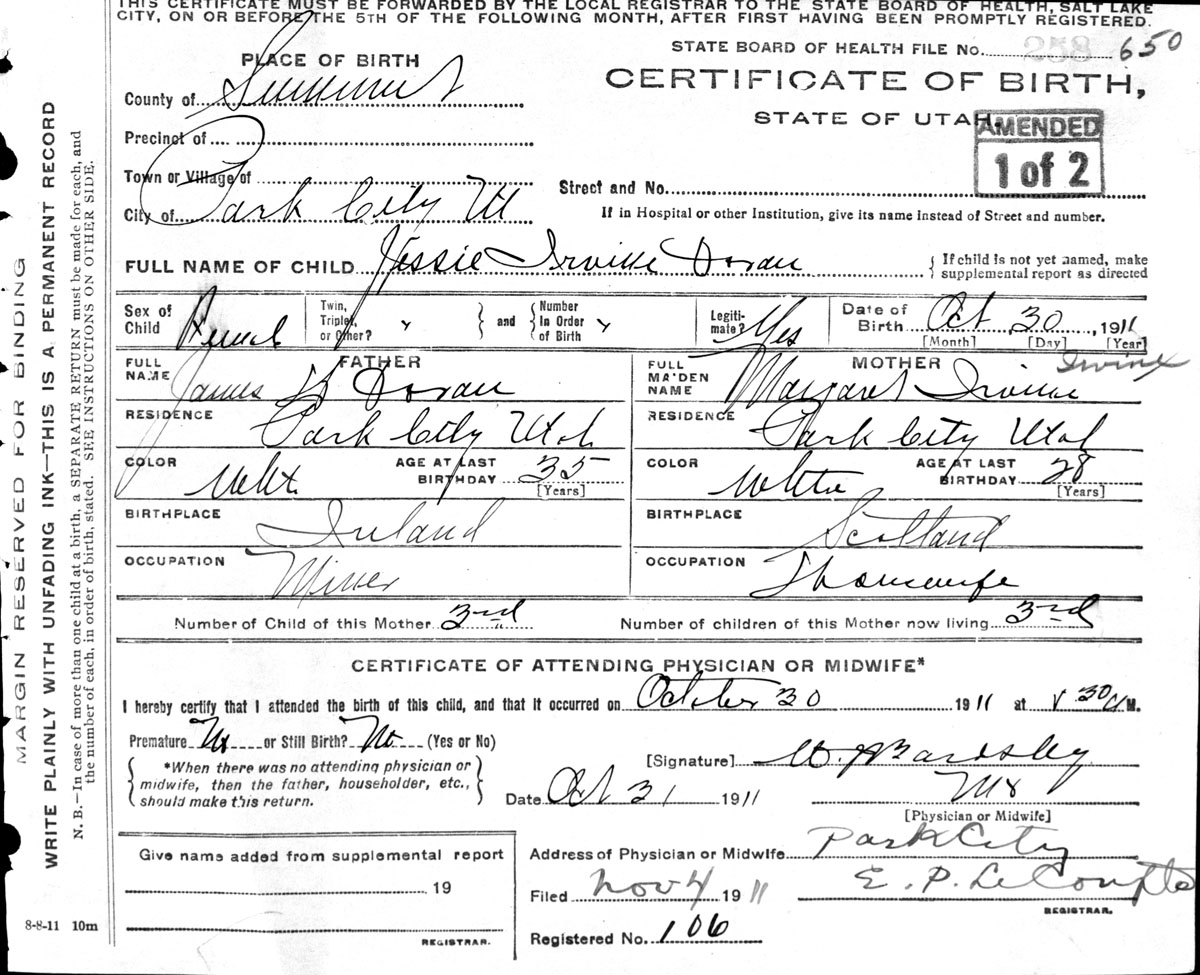 THIS CERTIFICATE MUST BE FORWARDED BY THE LOCAL REGISTRAR TO THE STATE BOARD OF HEALTH, SALT LAKE
CITY, ON OR BEFORE THE 5TH OF THE FOLLOWING MONTH, AFTER FIRST HAVING BEEN PROMPTLY REGISTERED.
STATE BOARD OF HEALTH FILE No. 258 650
PLACE OF BIRTH
CERTIFICATE OF BIRTH,
County of Summit
STATE OF UTAH.
AMENDED
1 of 2
Precinct of
Town or Village of
Street and No.
City of Park City Ut
If in Hospital or other Institution, give its name instead of Street and number.
FULL NAME OF CHILD Jessie Irvine Doran
{ If child is not yet named, make
supplemental report as directed
Sex of Child Femal
Twin, Triplet, or Other? "
} and {
Number In Order of Birth "
Legiti-mate? Yes
Date of Birth Oct 30, 1911
[Month] [Day] [Year]
FATHER
FULL NAME James H Doran
MOTHER
FULL MAIDEN NAME Margaret Irvine
Irvine
RESIDENCE Park City Utah
RESIDENCE Park City Utah
COLOR Wht
AGE AT LAST BIRTHDAY 35
[Years]
COLOR White
AGE AT LAST BIRTHDAY 28
[Years]
BIRTHPLACE Ireland
BIRTHPLACE Scotland
OCCUPATION Miner
OCCUPATION Housewife
Number of Child of this Mother 3rd
Number of children of this Mother now living 3rd
CERTIFICATE OF ATTENDING PHYSICIAN OR MIDWIFE*
I hereby certify that I attended the birth of this child, and that it occurred on October 30 1911 at 30 M.
Premature No or Still Birth? No (Yes or No)
{ *When there was no attending physician or
midwife, then the father, householder, etc.,
should make this return. }
[Signature] W. J Bardsley
Date Oct 31 1911
[Physician or Midwife]
Give name added from supplemental report
19
REGISTRAR.
Address of Physician or Midwife Park City
Filed Nov 4 1911
E. P. LeCompte
REGISTRAR.
Registered No. 106
8-8-11 10m
MARGIN RESERVED FOR BINDING
WRITE PLAINLY WITH UNFADING INK—THIS IS A PERMANENT RECORD
N. B.—In case of more than one child at a birth, a SEPARATE RETURN must be made for each, and
the number of each, in order of birth, stated. SEE INSTRUCTIONS ON OTHER SIDE.